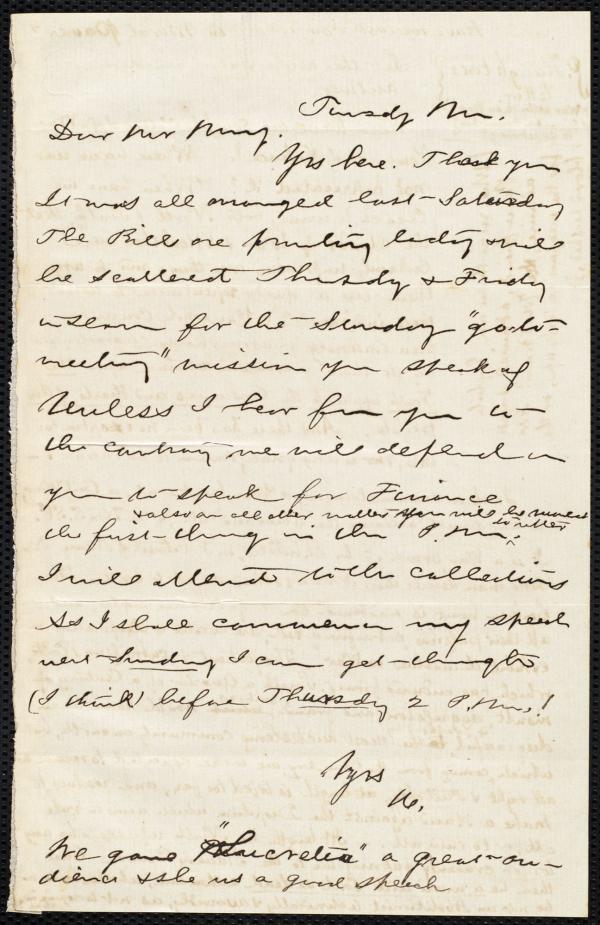 Tuesdy Mn.
Dear Mr May.
Yrs here. Thank you
It was all arranged last Saturday
The Bills are printing today & will
be scattered Thursdy & Friday
in season for the Sunday "go-to-
meeting" mission you speak of
Unless I hear from you to
the contrary we will depend on
you to speak for Finance
& also on all other matter you will be moved
to utter
the first thing in the P.M.
I will attend to the collections
As I shall commence my speech
next Sunday I can get through
(I think) before Thursdy 2 P.M.!
Yrs
We gave "Lucretia" a great au-
dience & she us a good speech